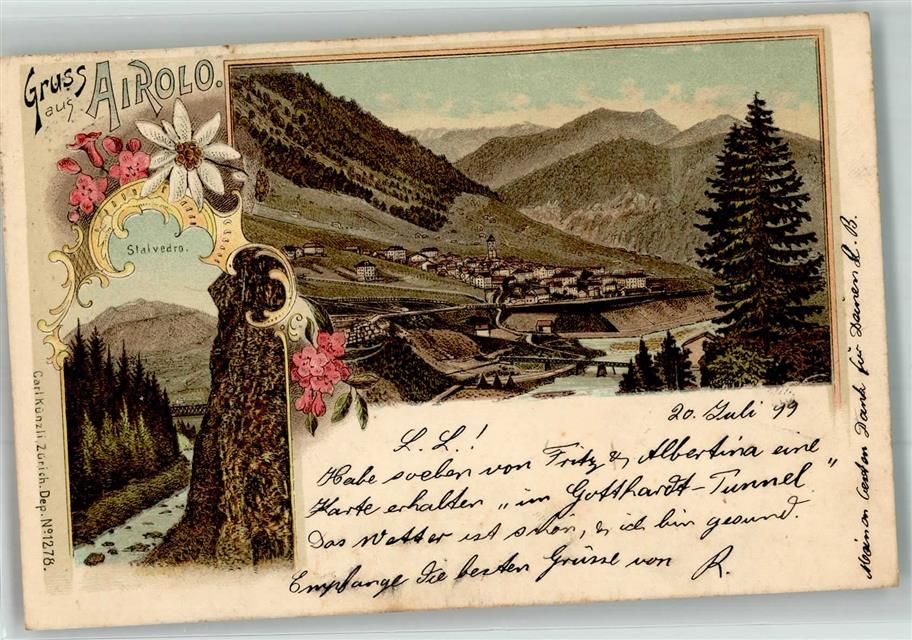 Gruss
aus AIROLO.
Stalvedro.
Carl Künzli, Zürich. Dep. No 1278.
20. Juli 99
L. L.!
Habe soeben von Fritz & Albertina eine
Karte erhalten „im Gotthardt-Tunnel"
Das Wetter ist schön, & ich bin gesund.
Empfange die besten Grüsse von R.
Meinen besten Dank für Deinen l. B.